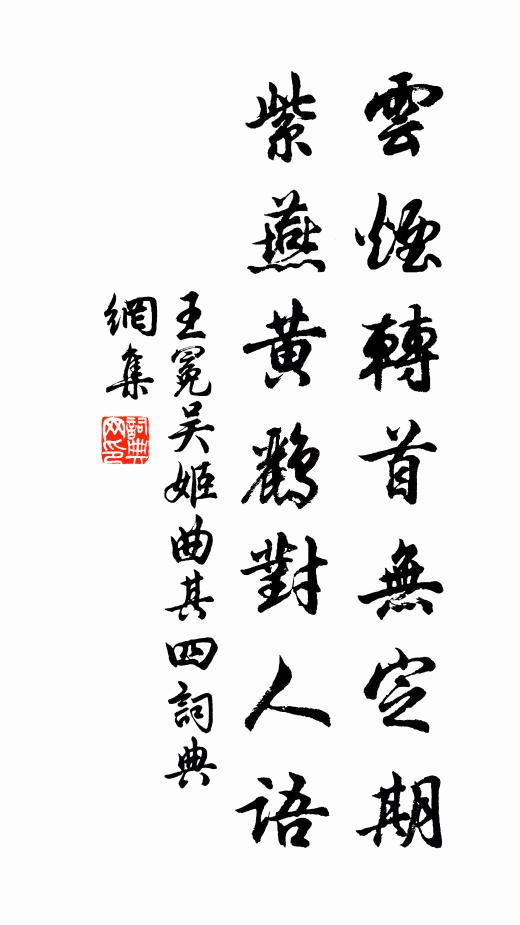 雲煙轉首無定期
紫燕黃鸝對人語
王冕吳姬曲其四詞典
網集
詞典
网印